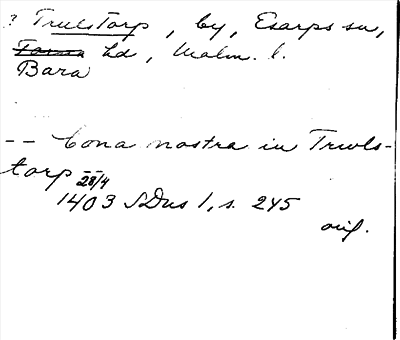 ? Trulstorp, by, Esarps sn,
Torna hd, Malm. l.
Bara
-- bona nostra in Trwls-
torp --
28/4
1403 SDns 1, s. 245
orig.